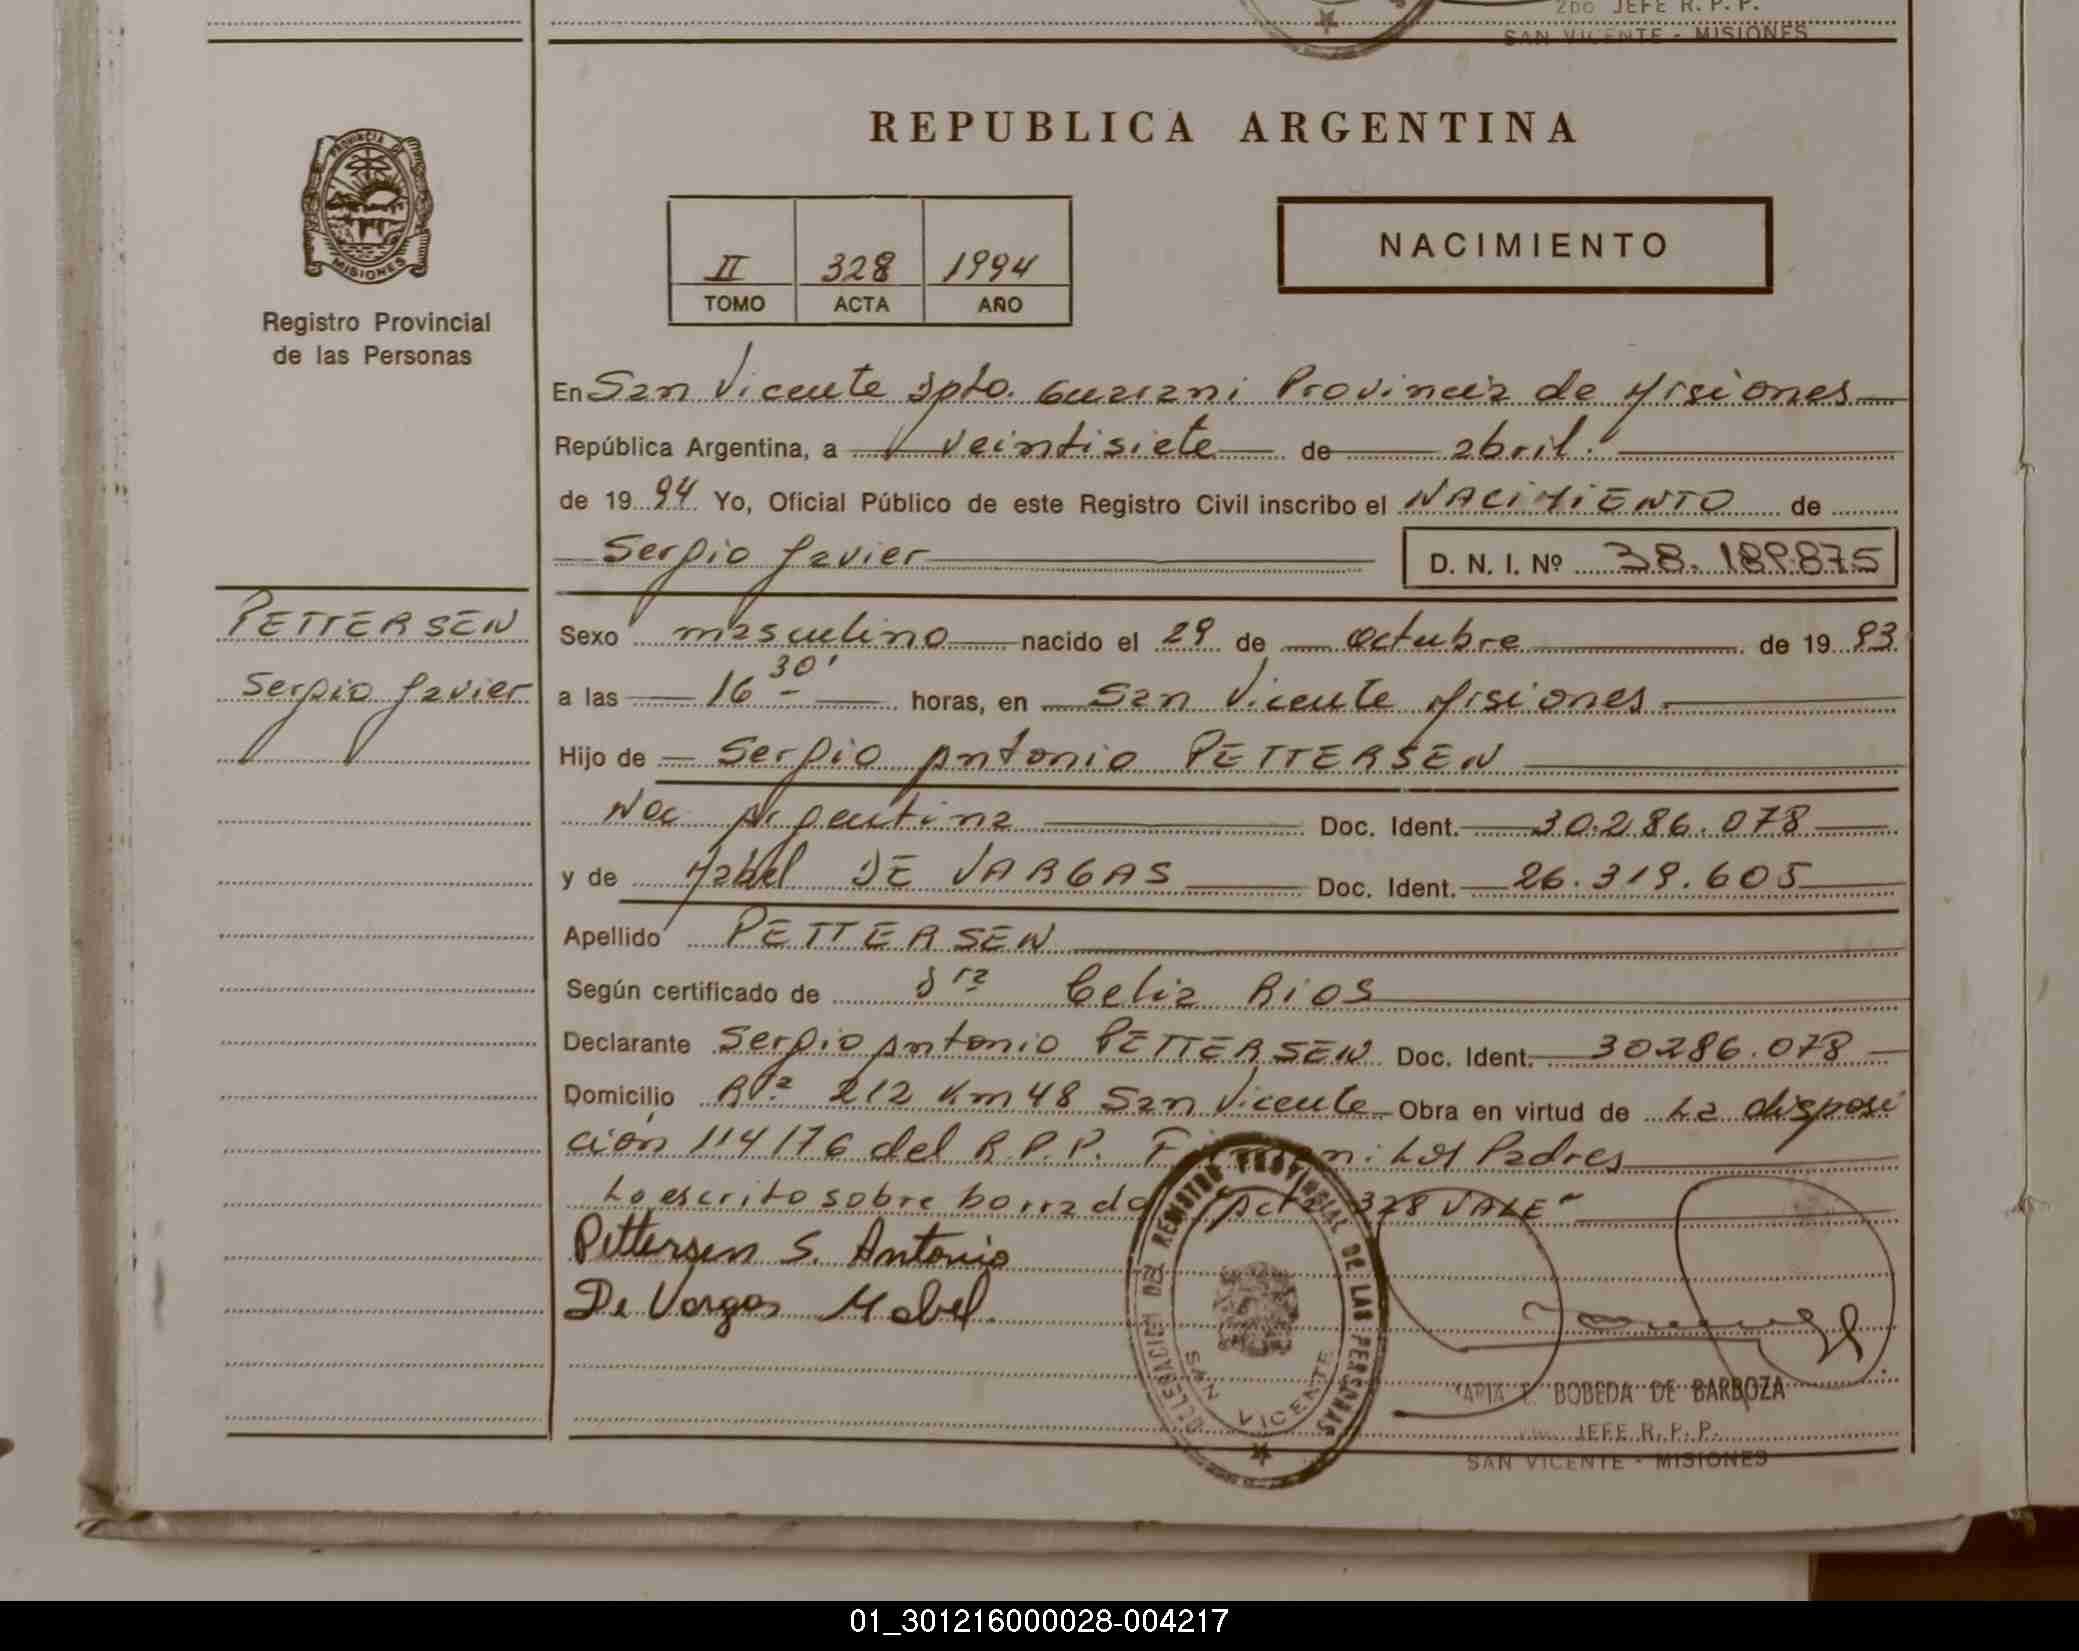 2DO JEFE R. P. P.
SAN VICENTE - MISIONES
PROVINCIA DE
MISIONES
Registro Provincial
de las Personas
REPUBLICA ARGENTINA
II 328 1994
TOMO ACTA AÑO
NACIMIENTO
En San Vicente Dpto. Guarani Provincia de Misiones
República Argentina, a veintisiete de abril.
de 19 94 Yo, Oficial Público de este Registro Civil inscribo el NACIMIENTO de
Sergio Javier D. N. I. Nº 38.189.875
PETTERSEN
Sergio Javier
Sexo masculino nacido el 29 de octubre de 19 93
a las 16 30' horas, en San Vicente Misiones
Hijo de Sergio Antonio PETTERSEN
Nac Argentina Doc. Ident. 30.286.078
y de Mabel DE VARGAS Doc. Ident. 26.319.605
Apellido PETTERSEN
Según certificado de Dra Celia RIOS
Declarante Sergio Antonio PETTERSEN Doc. Ident. 30286.078
Domicilio Rta 212 Km 48 San Vicente Obra en virtud de La disposi
ción 114/76 del R.P.P. Firman: Los Padres
Lo escrito sobre borrado "Acta 328 VALE"
Pettersen S. Antonio
De Vargas Mabel.
DELEGACION DEL REGISTRO PROVINCIAL DE LAS PERSONAS
SAN VICENTE
BOBEDA DE BARBOZA
JEFE R. P. P.
SAN VICENTE - MISIONES
01_301216000028-004217